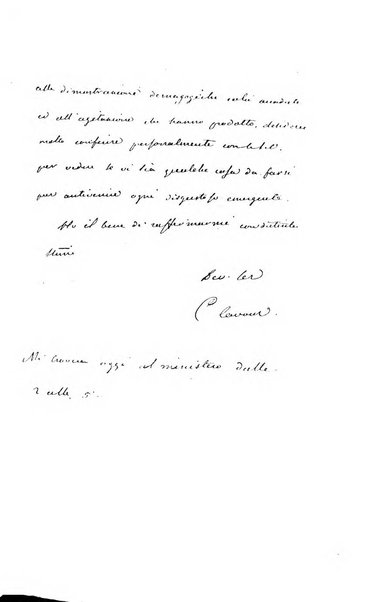 alle dimostrazioni demagogiche colà accadute
ed all'agitazione che hanno prodotto, desidererei
molto conferire personalmente con lei
per vedere se vi sia qualche cosa da farsi
per antivenire ogni disgustoso emergente.
Ho il bene di raffermarmi con distinta
stima
Dev. Ser
C Cavour.
Mi troverà oggi al ministero dalle
2 alle 5.